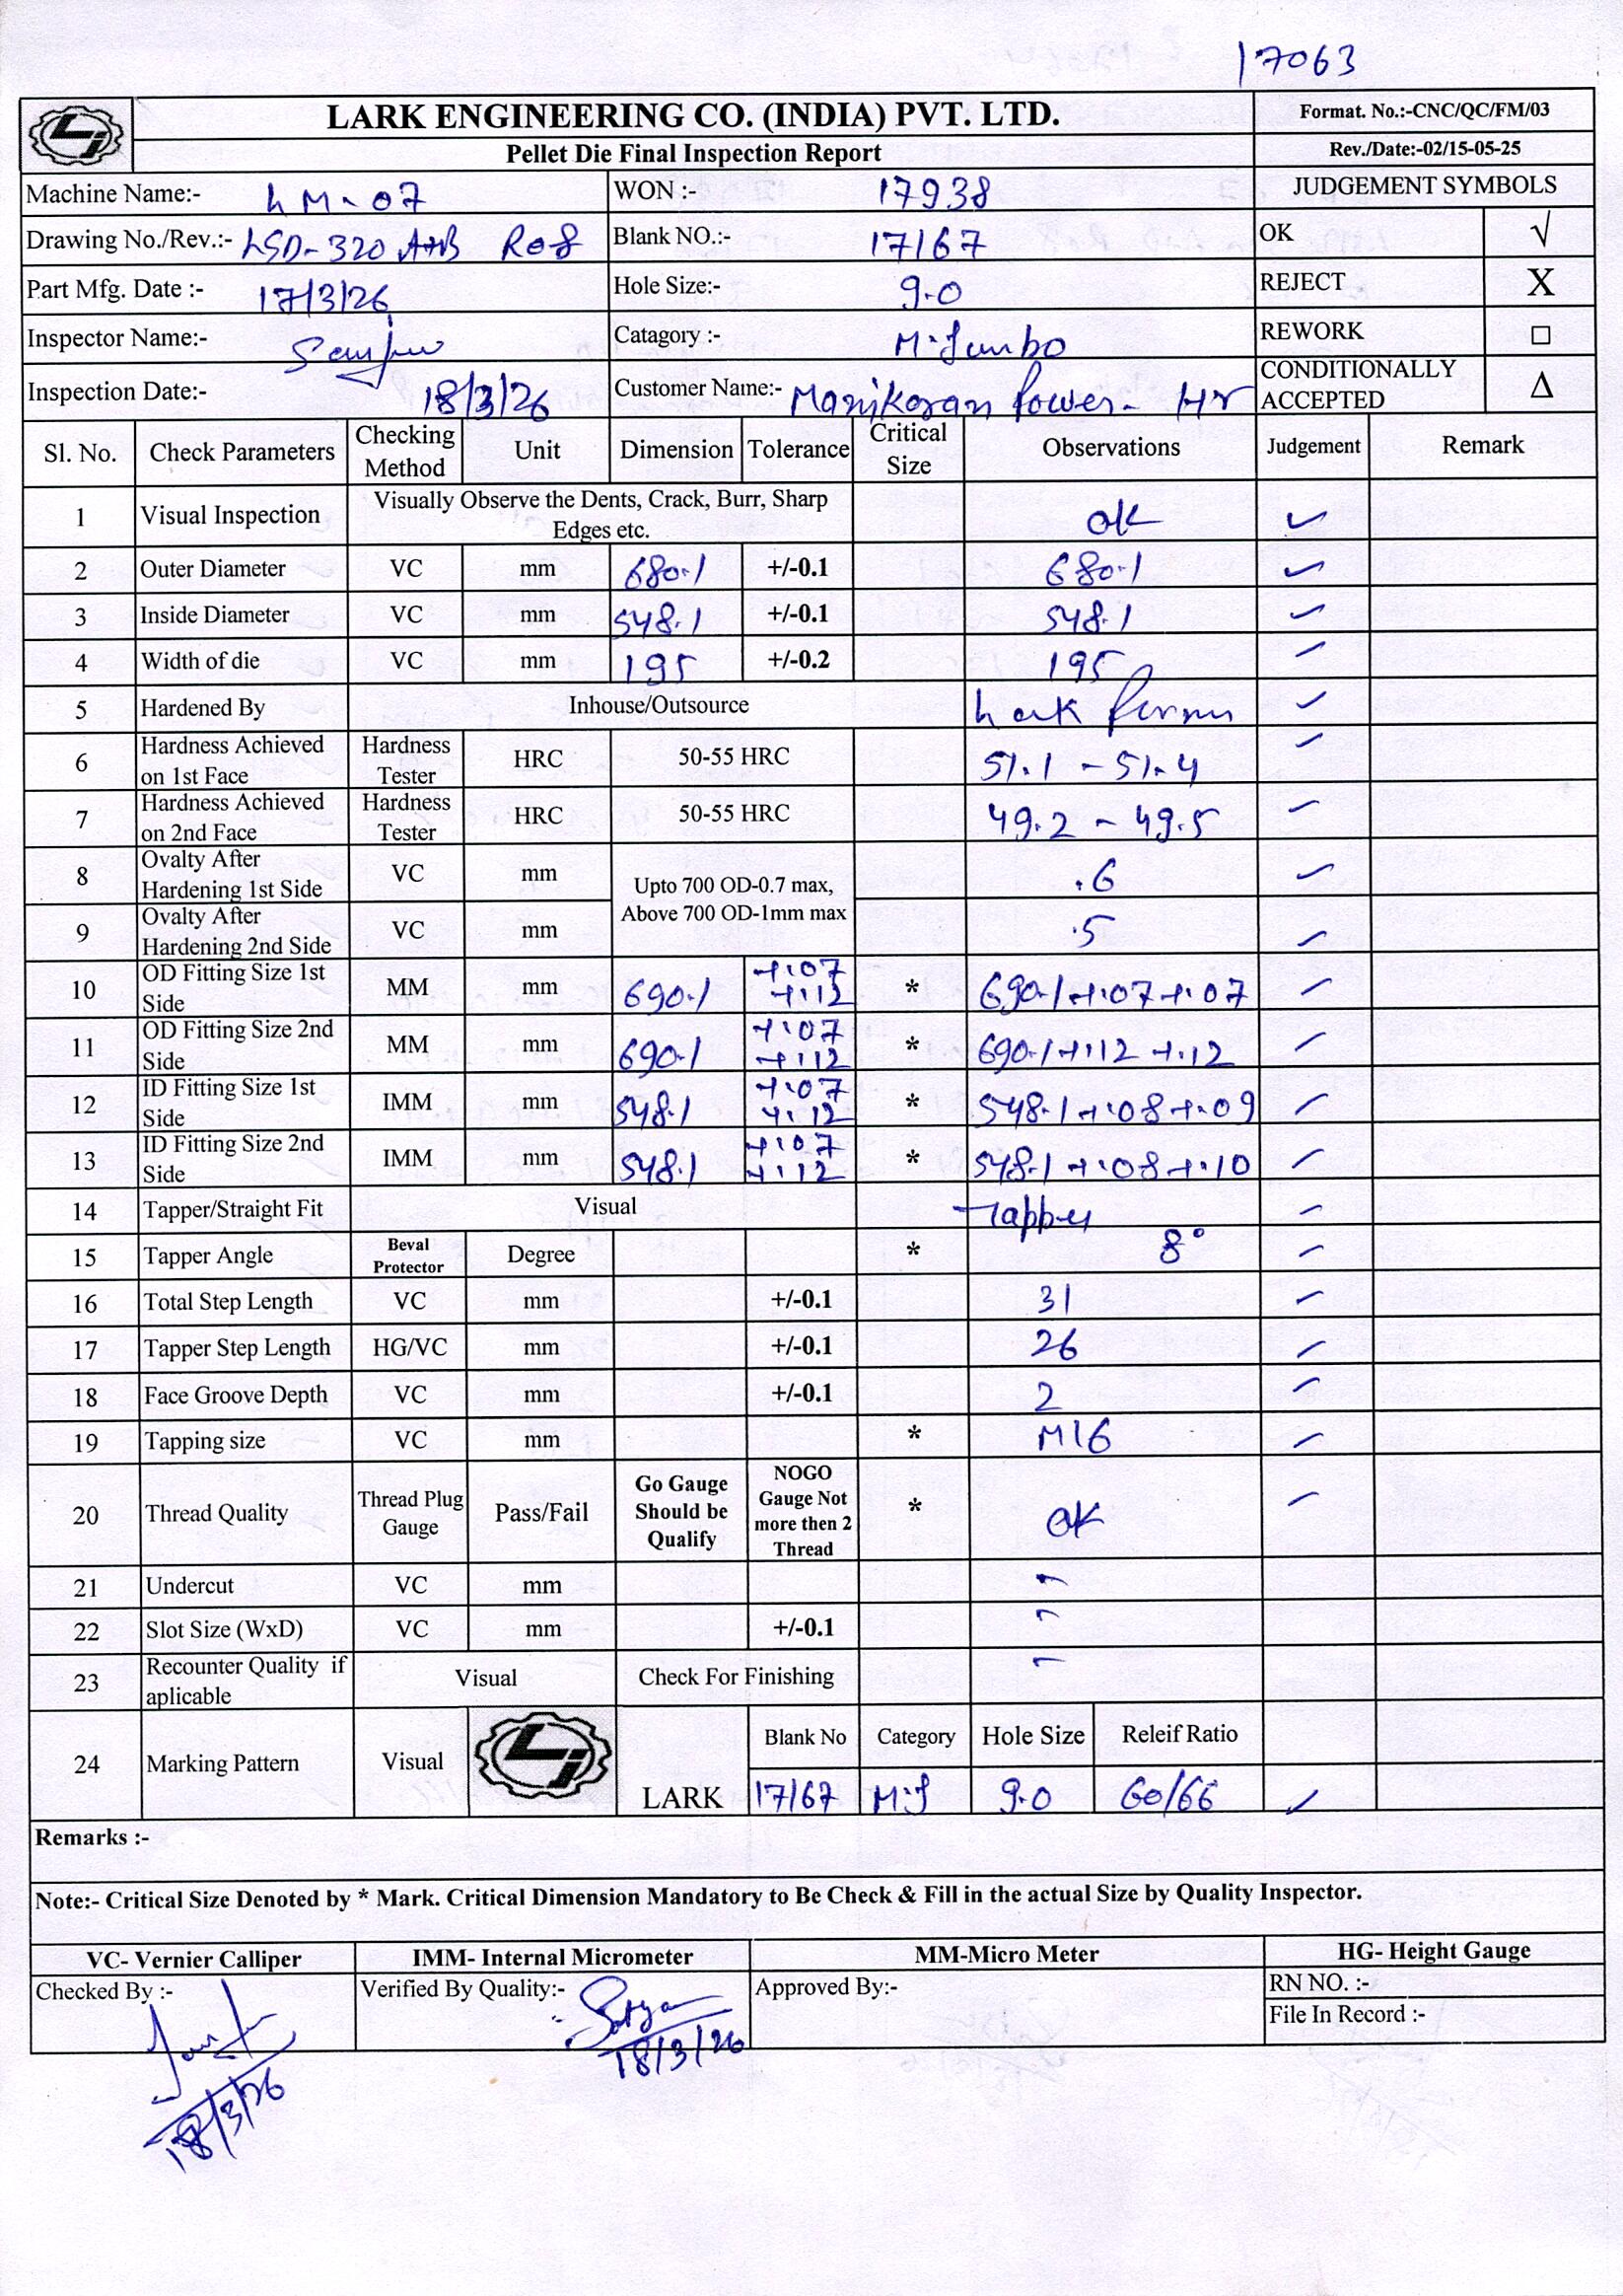 17063
LARK ENGINEERING CO. (INDIA) PVT. LTD. Format. No.:-CNC/QC/FM/03
Pellet Die Final Inspection Report Rev./Date:-02/15-05-25
Machine Name:- LM-07 WON :- 17938 JUDGEMENT SYMBOLS
Drawing No./Rev.:- LSD-320 A+B R08 Blank NO.:- 17167 OK √
Part Mfg. Date :- 17/3/26 Hole Size:- 9.0 REJECT X
Inspector Name:- Catagory :- M.Jumbo REWORK □
Inspection Date:- 18/3/26 Customer Name:- Manikaran Power- Hr CONDITIONALLY ACCEPTED Δ
Sl. No. Check Parameters Checking Method Unit Dimension Tolerance Critical Size Observations Judgement Remark
1 Visual Inspection Visually Observe the Dents, Crack, Burr, Sharp Edges etc. ok ✓
2 Outer Diameter VC mm 680.1 +/-0.1 680.1 ✓
3 Inside Diameter VC mm 548.1 +/-0.1 548.1 ✓
4 Width of die VC mm 195 +/-0.2 195 ✓
5 Hardened By Inhouse/Outsource Lark ✓
6 Hardness Achieved on 1st Face Hardness Tester HRC 50-55 HRC 51.1 - 51.4 ✓
7 Hardness Achieved on 2nd Face Hardness Tester HRC 50-55 HRC 49.2 - 49.5 ✓
8 Ovalty After Hardening 1st Side VC mm Upto 700 OD-0.7 max, Above 700 OD-1mm max .6 ✓
9 Ovalty After Hardening 2nd Side VC mm .5 ✓
10 OD Fitting Size 1st Side MM mm 690.1 +.07 +.12 * 690.1 +.07 +.07 ✓
11 OD Fitting Size 2nd Side MM mm 690.1 +.07 +.12 * 690.1 +.12 +.12 ✓
12 ID Fitting Size 1st Side IMM mm 548.1 +.07 +.12 * 548.1 +.08 +.09 ✓
13 ID Fitting Size 2nd Side IMM mm 548.1 +.07 +.12 * 548.1 +.08 +.10 ✓
14 Tapper/Straight Fit Visual Tapper ✓
15 Tapper Angle Beval Protector Degree * 8° ✓
16 Total Step Length VC mm +/-0.1 31 ✓
17 Tapper Step Length HG/VC mm +/-0.1 26 ✓
18 Face Groove Depth VC mm +/-0.1 2 ✓
19 Tapping size VC mm * M16 ✓
20 Thread Quality Thread Plug Gauge Pass/Fail Go Gauge Should be Qualify NOGO Gauge Not more then 2 Thread * ok ✓
21 Undercut VC mm -
22 Slot Size (WxD) VC mm +/-0.1 -
23 Recounter Quality if aplicable Visual Check For Finishing -
24 Marking Pattern Visual LARK Blank No Category Hole Size Releif Ratio
17167 M.J 9.0 60/66 ✓
Remarks :-
Note:- Critical Size Denoted by * Mark. Critical Dimension Mandatory to Be Check & Fill in the actual Size by Quality Inspector.
VC- Vernier Calliper IMM- Internal Micrometer MM-Micro Meter HG- Height Gauge
Checked By :- Verified By Quality:- Satya Approved By:- RN NO. :-
18/3/26 File In Record :-
18/3/26